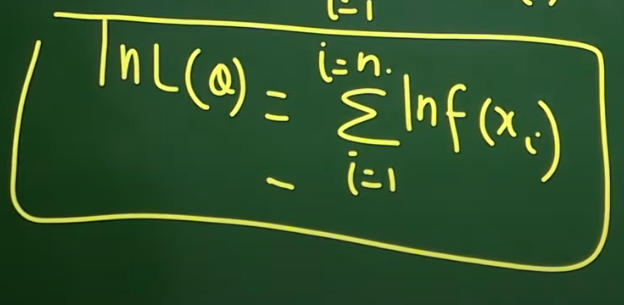 i=1
ln L(θ) = i=n. Σ i=1 ln f(xᵢ)